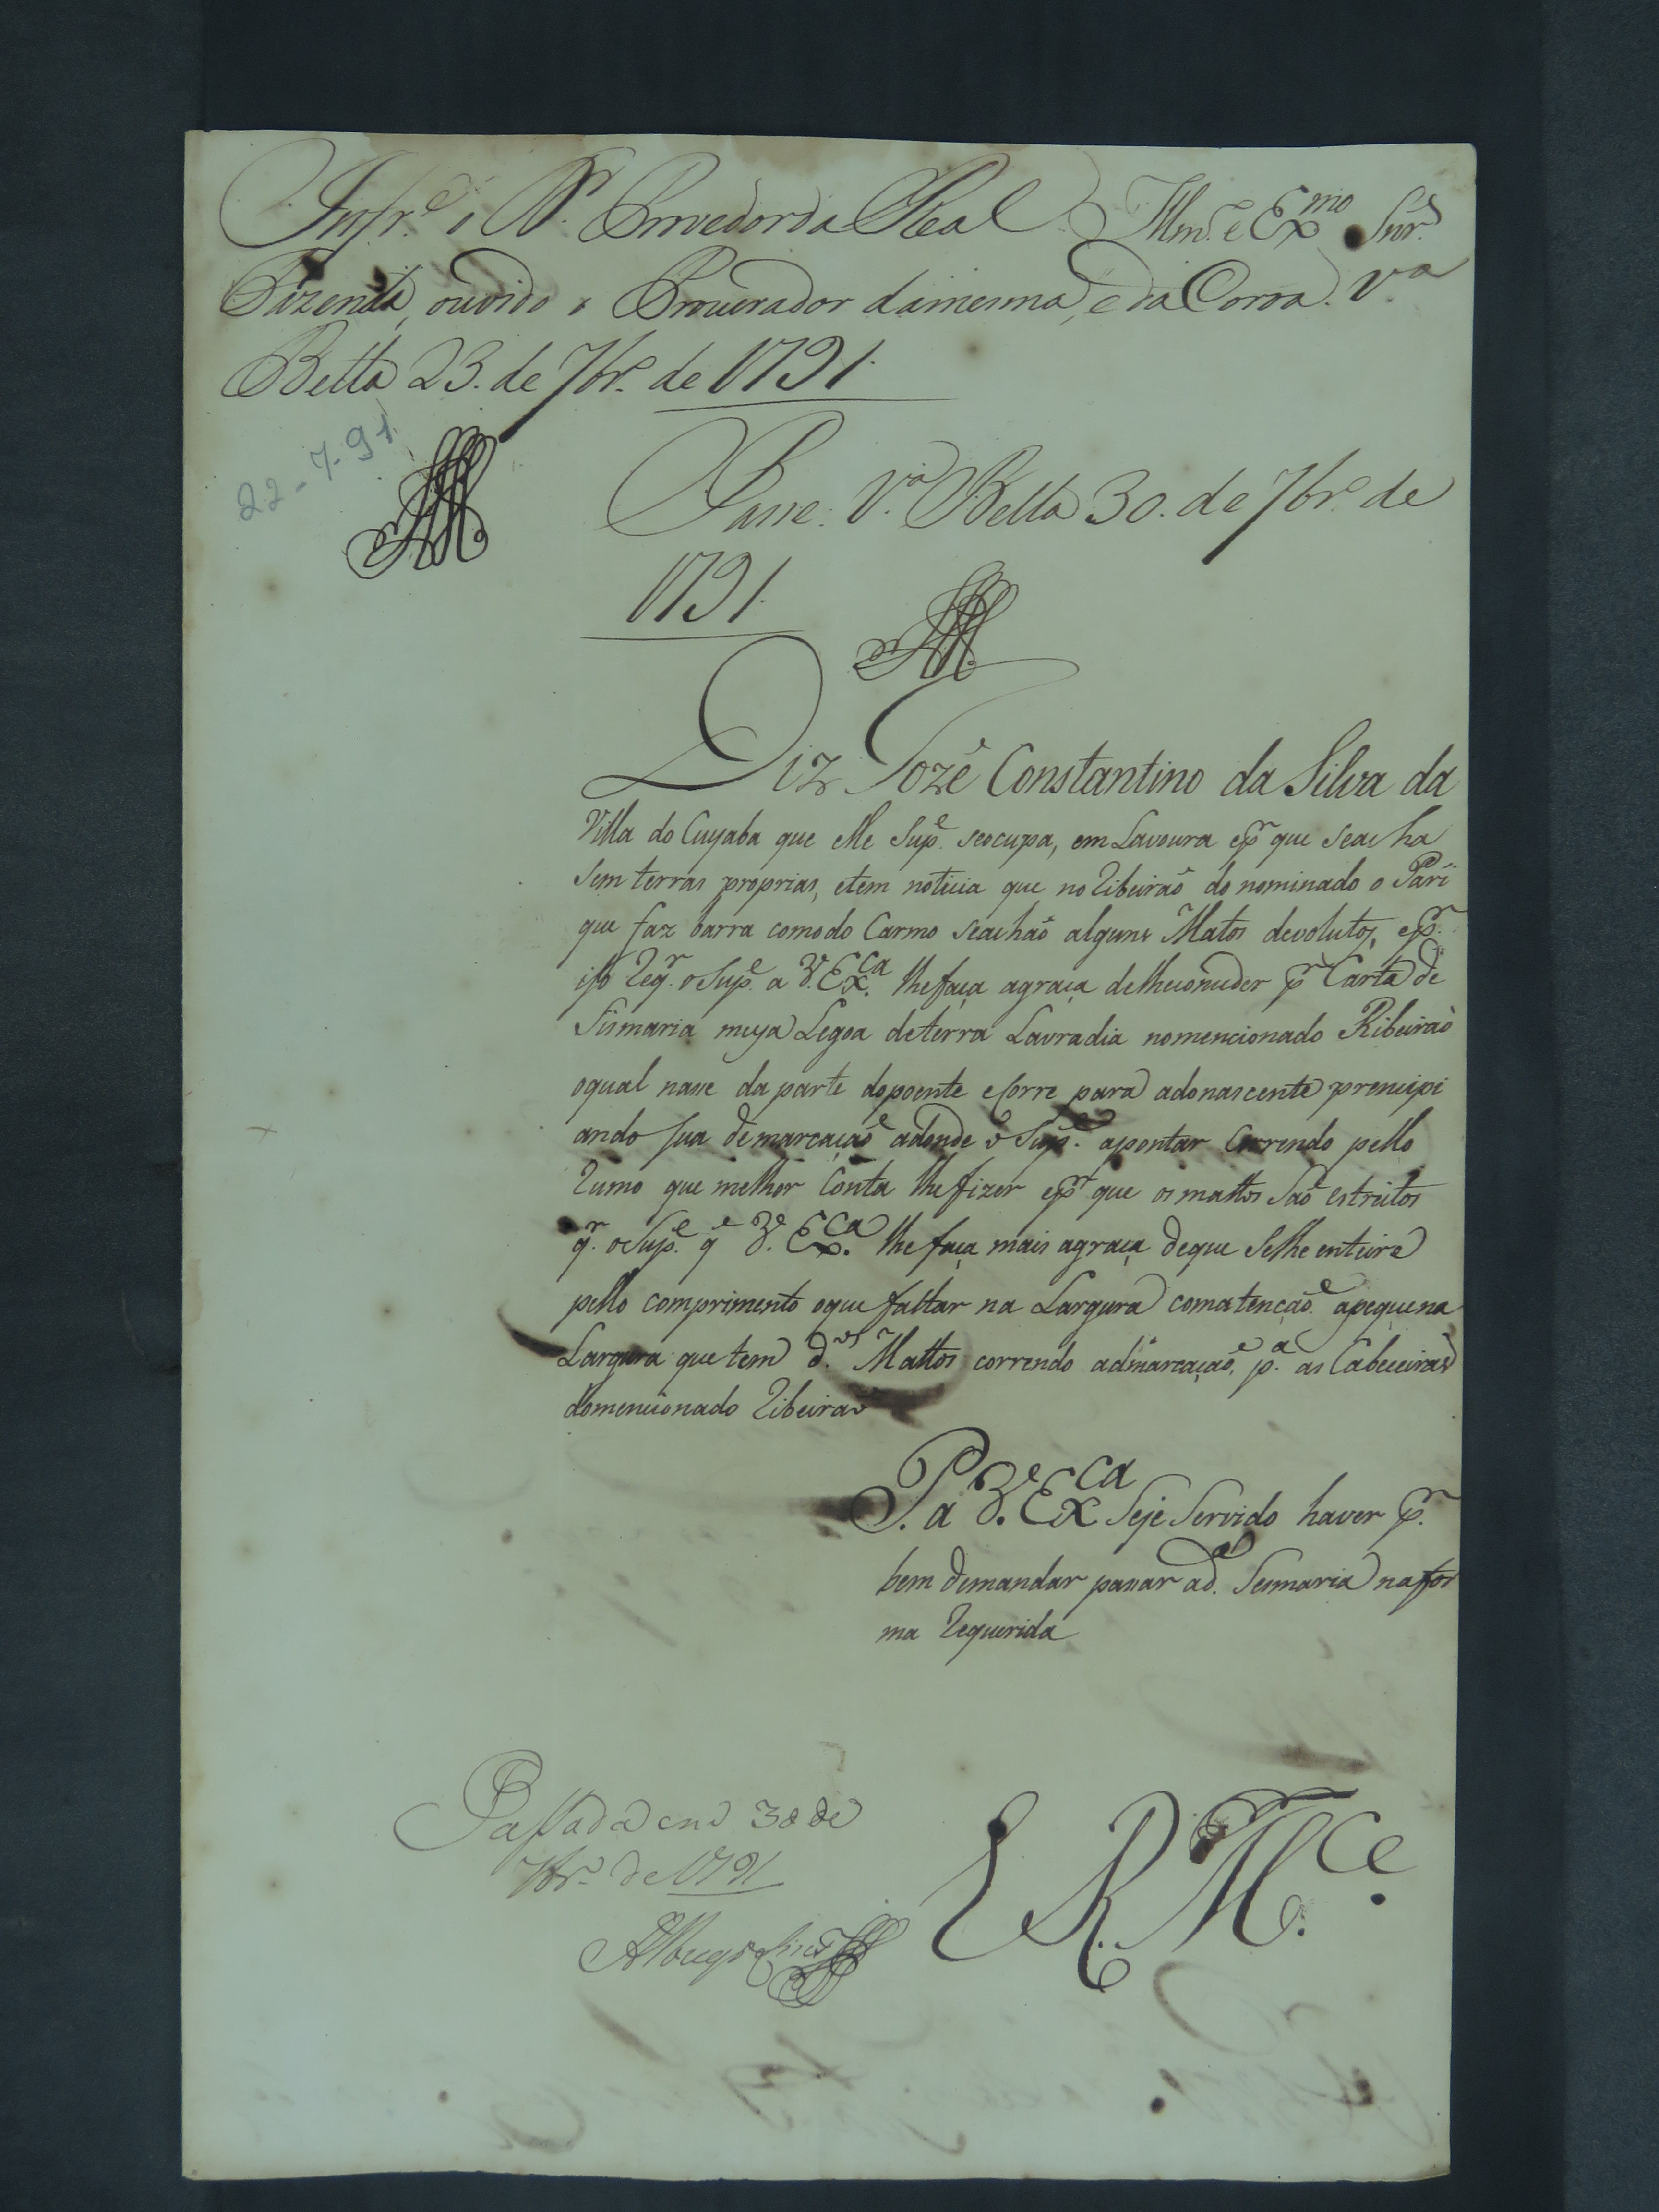 Infr.e o D.r Provedor da Real Illm.o e Exmo Snr.
Fazenda, ouvido o Procurador damesma, e da Coroa. V.a
Bella 23. de 7br.o de 1791.
22-7-91
Passe. V.a Bella 30. de 7br.o de
1791.
Diz Jozé Constantino da Silva da
Villa do Cuyaba que elle Sup.e seocupa, em Lavoura epr que seacha
sem terras proprias, etem noticia que no Ribeiraõ do nominado o Pari
que faz barra comodo Carmo seachaõ alguns Matos devolutos, epr.
iso Req.r o Sup.e a V. Ex.ca lhefaça agraça delheconceder pr Carta de
Sismaria meya Legoa deterra Lavradia nomencionado Ribeiraõ
oqual nasce da parte dopoente ecorre para adonascente princípi
ando sua demarcaçaõ adonde o Sup.e apontar Correndo pello
Rumo que melhor Conta lhefizer epr que os mattos Saõ estreitos
q.r o Sup.e q e V. Ex.ca lhe faça mais agraça deque Selhe enteire
pello comprimento oque faltar na Largura comatencaõ apequena
Largura que tem d.os Mattos correndo admarcaçaõ, p.a as Cabeceiras
domencionado Ribeiraõ
P. a V. Exca Seje Servido haver pr.
bem demandar passar ad.a Sesmaria nafor
ma Requerida
Passada em 30 de
7br.o de 1791
E R. M.ce